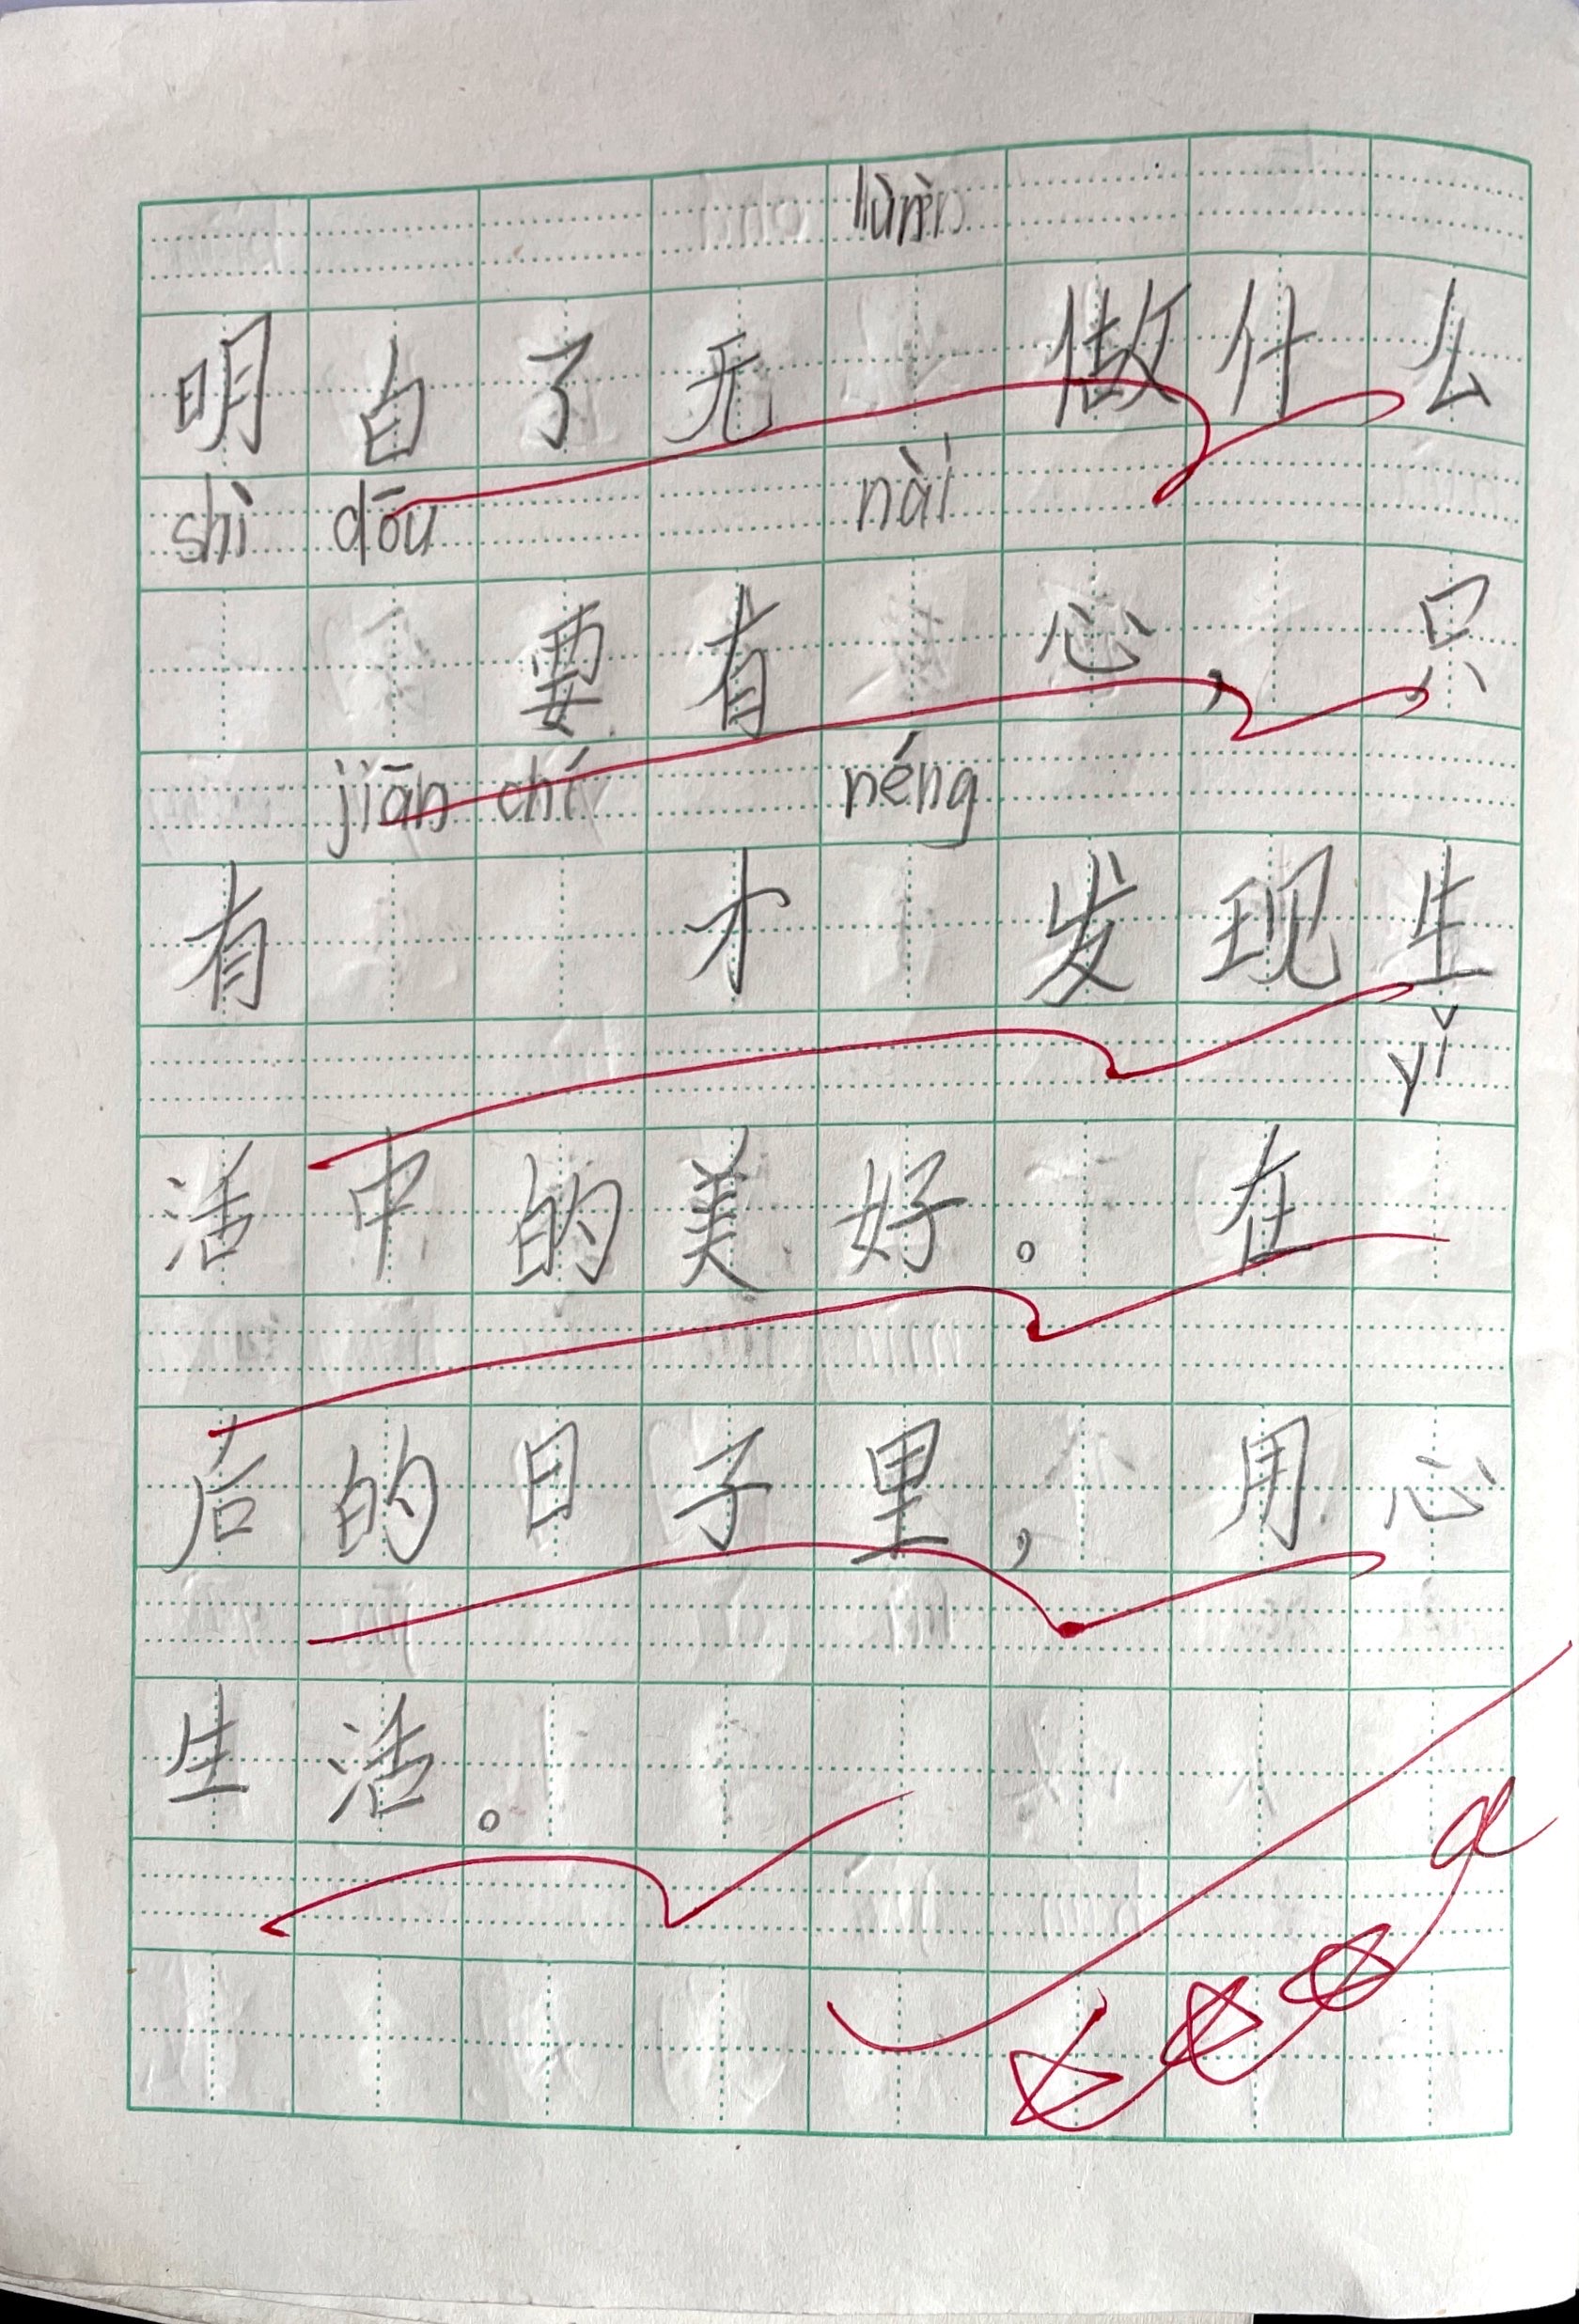 lùn
明白了无做什么
shì dōu nài
要有心，只
jiān chí néng
有才发现生
yǐ
活中的美好。在
后的日子里，用心
生活。